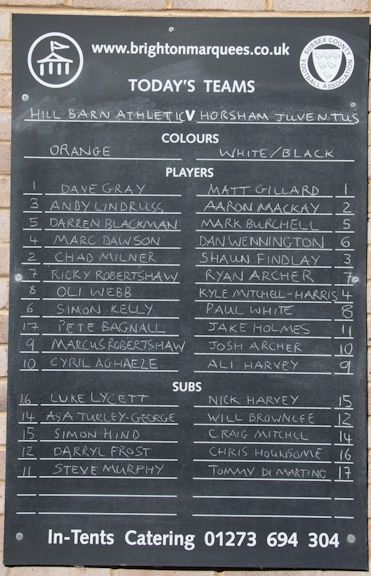 www.brightonmarquees.co.uk
SUSSEX COUNTY FOOTBALL ASSOCIATION
TODAY'S TEAMS
HILL BARN ATHLETIC V HORSHAM JUVENTUS
COLOURS
ORANGE WHITE/BLACK
PLAYERS
1 DAVE GRAY MATT GILLARD 1
3 ANDY LINDRUSS AARON MACKAY 2
5 DARREN BLACKMAN MARK BURCHELL 5
4 MARC DAWSON DAN WENNINGTON 6
2 CHAD MILNER SHAUN FINDLAY 3
7 RICKY ROBERTSHAW RYAN ARCHER 7
8 OLI WEBB KYLE MITCHELL-HARRIS 4
6 SIMON KELLY PAUL WHITE 8
17 PETE BAGNALL JAKE HOLMES 11
9 MARCUS ROBERTSHAW JOSH ARCHER 10
10 CYRIL AGHAEZE ALI HARVEY 9
SUBS
16 LUKE LYCETT NICK HARVEY 15
14 ASA TURLEY-GEORGE WILL BROWNLEE 12
15 SIMON HIND CRAIG MITCHELL 14
12 DARRYL FROST CHRIS HOUNSOME 16
11 STEVE MURPHY TOMMY DI MARTINO 17
In-Tents Catering 01273 694 304